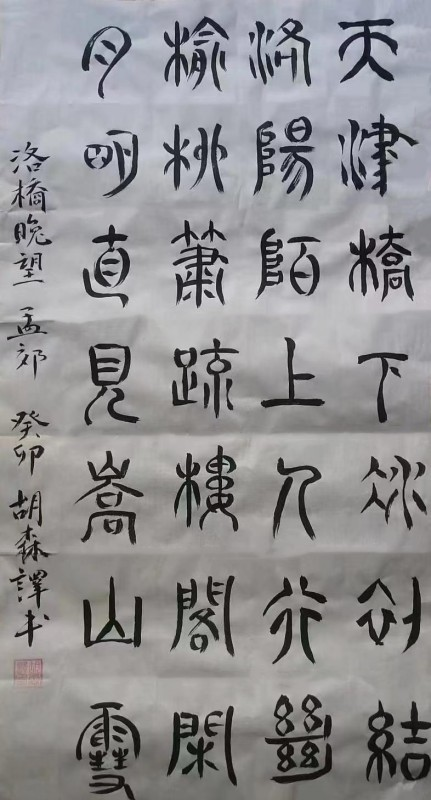 天津橋下冰初結
洛陽陌上人行絕
榆柳蕭疏樓閣閑
月明直見嵩山雪
洛橋晚望 孟郊 癸卯 胡森譯书